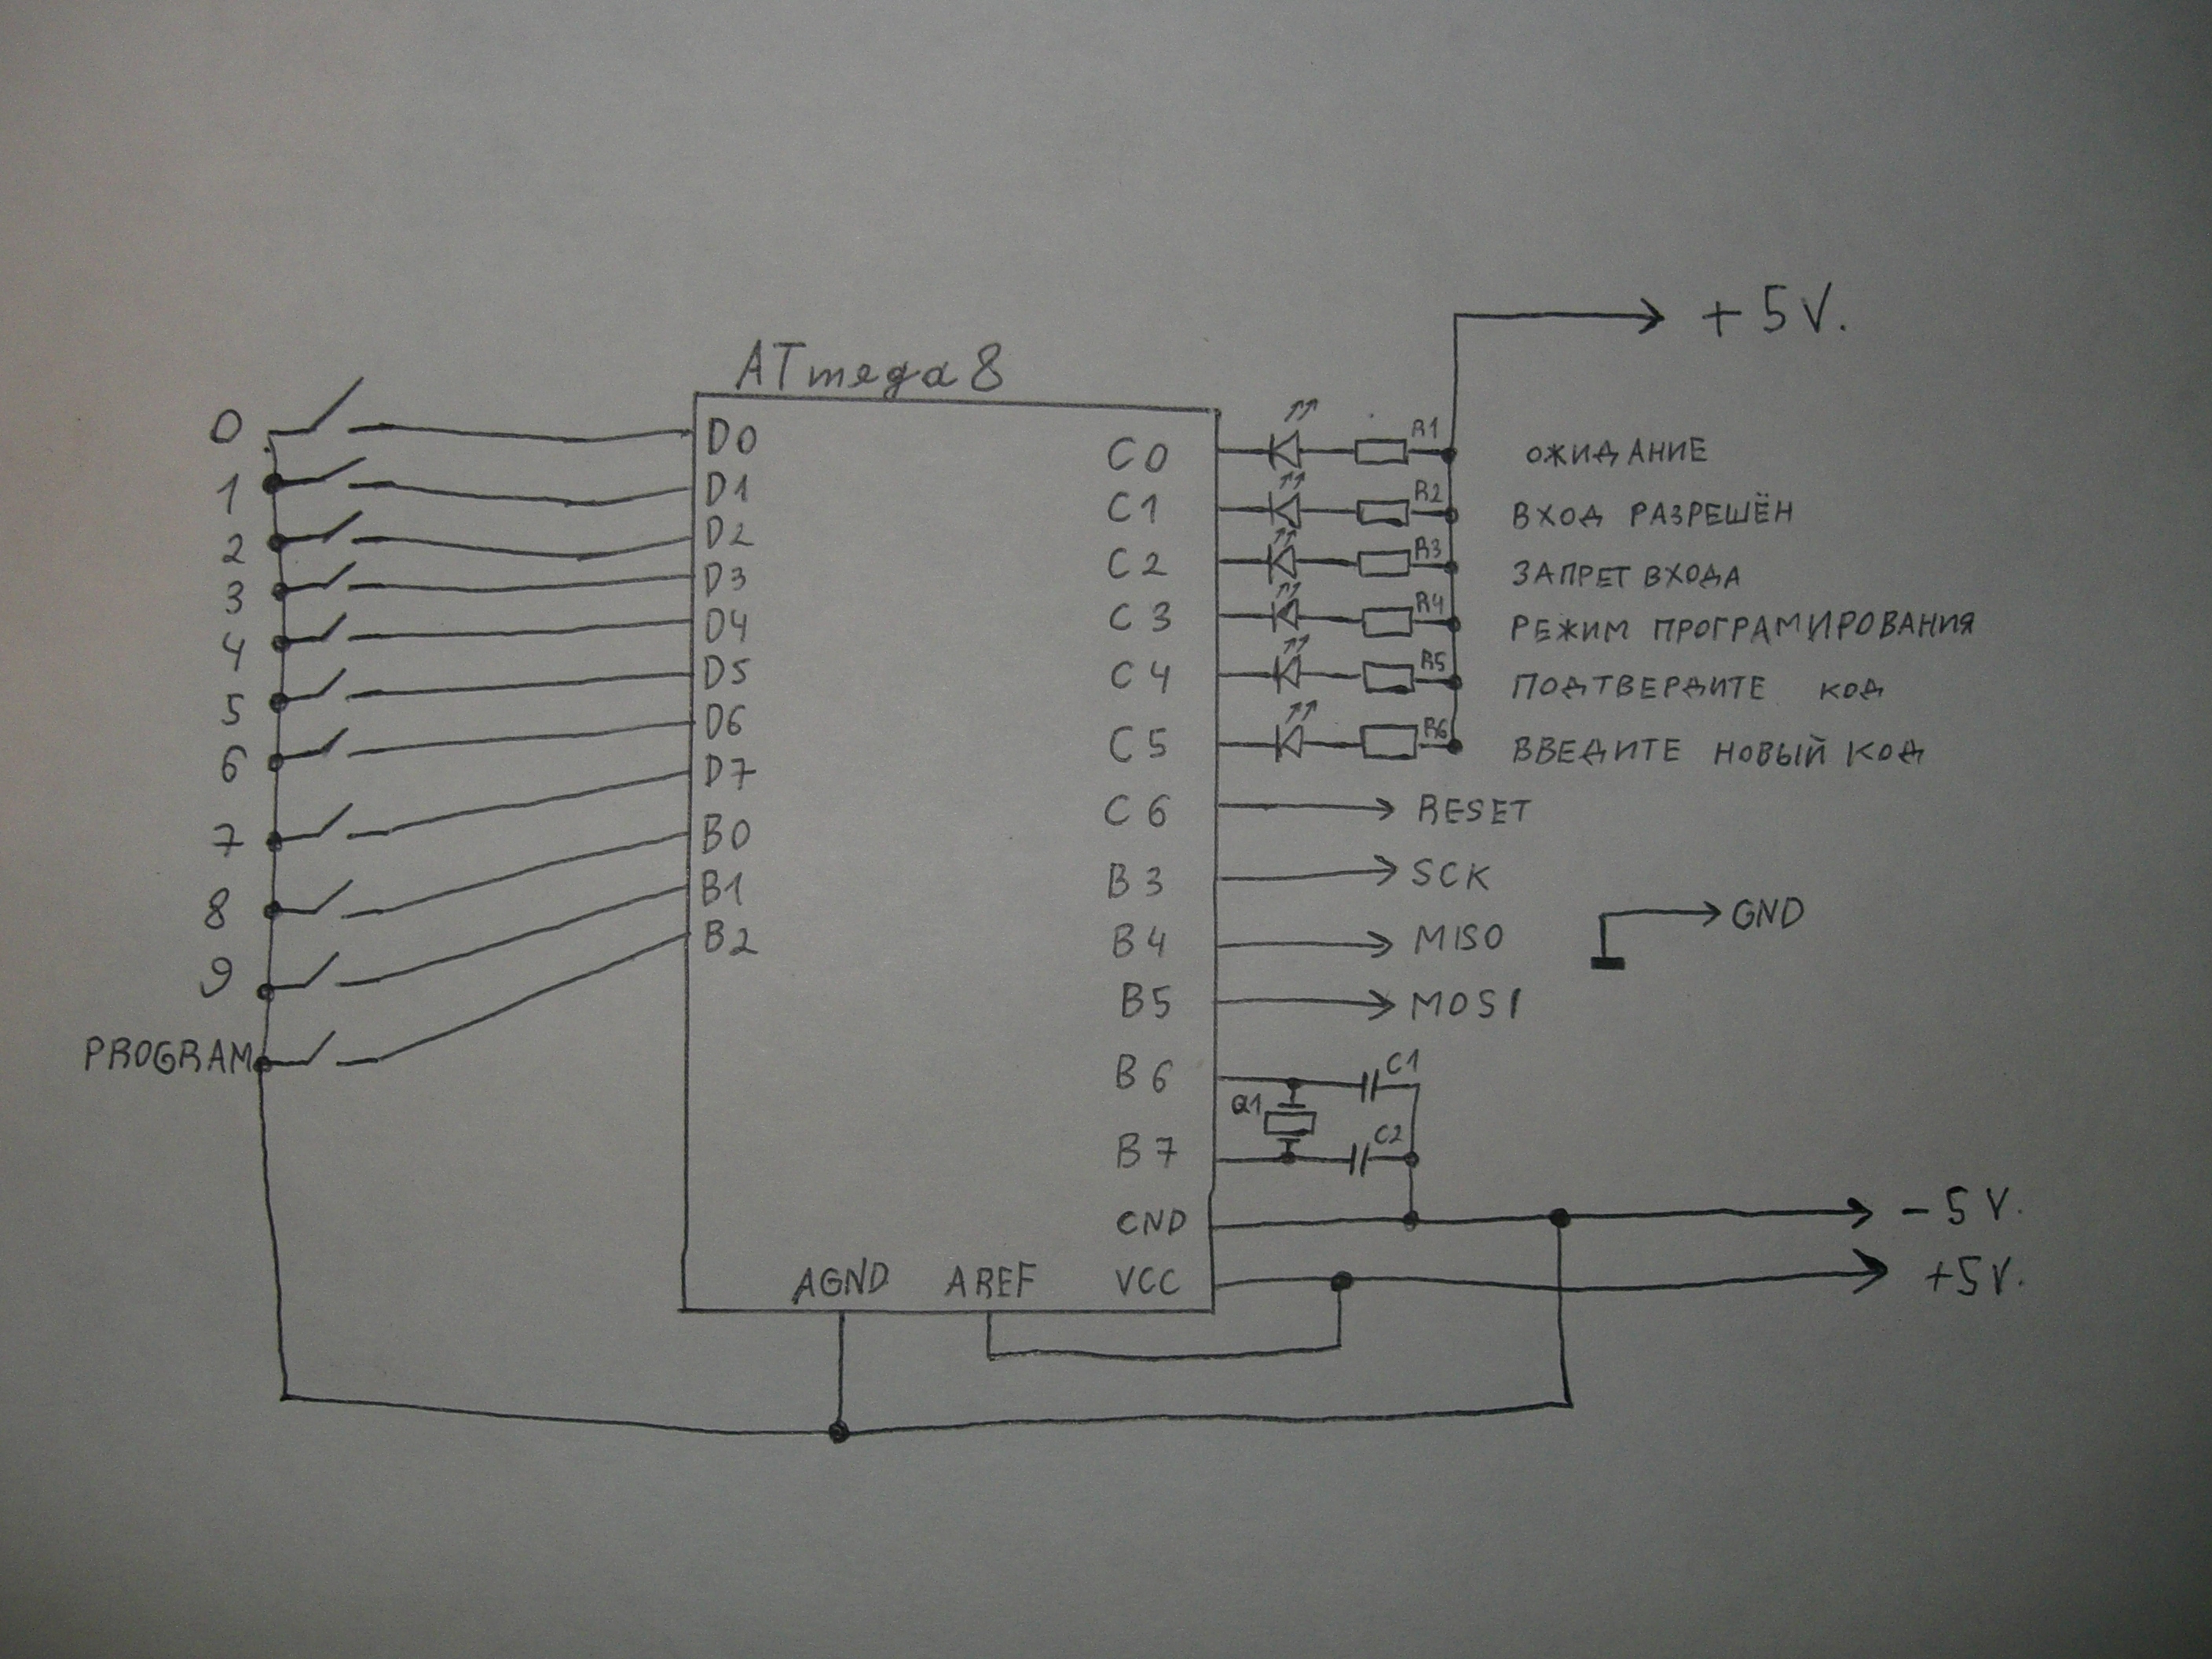 +5V.
ATmega8
0
1
2
3
4
5
6
7
8
9
PROGRAM
D0
D1
D2
D3
D4
D5
D6
D7
B0
B1
B2
C0 R1 ОЖИДАНИЕ
C1 R2 ВХОД РАЗРЕШЁН
C2 R3 ЗАПРЕТ ВХОДА
C3 R4 РЕЖИМ ПРОГРАМИРОВАНИЯ
C4 R5 ПОДТВЕРДИТЕ КОД
C5 R6 ВВЕДИТЕ НОВЫЙ КОД
C6 RESET
B3 SCK
GND
B4 MISO
B5 MOSI
B6 C1
Q1
B7 C2
GND -5V.
VCC +5V.
AGND AREF